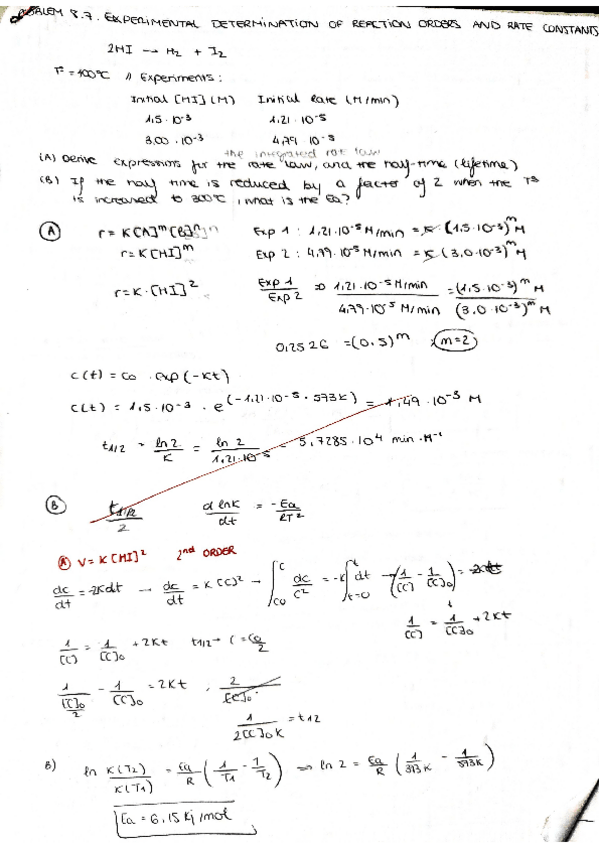 PROBLEM 8.7. EXPERIMENTAL DETERMINATION OF REACTION ORDERS AND RATE CONSTANTS
2HI → H₂ + I₂
Tª = 100ºC // Experiments:
Initial [HI] (M) Initial Rate (M/min)
1,5·10⁻³ 1,21·10⁻⁵
3,00·10⁻³ 4,79·10⁻⁵
the integrated rate law
(A) Derive expressions for the rate law, and the half-time (lifetime)
(B) If the half time is reduced by a factor of 2 when the Tª
is increased to 300ºC, what is the Ea?
(A) r = K[A]ᵐ[B]ⁿ Exp 1: 1,21·10⁻⁵ M/min = K·(1,5·10⁻³)ᵐ M
r = K[HI]ᵐ Exp 2: 4,79·10⁻⁵ M/min = K(3,0·10⁻³)ᵐ M
r = K·[HI]² Exp 1/Exp 2 ⇒ 1,21·10⁻⁵ M/min / 4,79·10⁻⁵ M/min = (1,5·10⁻³)ᵐ M / (3,0·10⁻³)ᵐ M
0,2526 = (0,5)ᵐ ; m=2
c(t) = co · exp(-kt)
c(t) = 1,5·10⁻³ · e^(-1,21·10⁻⁵ · 573K) = 1,49·10⁻³ M
t1/2 = ln 2/K = ln 2/1,21·10⁻⁵ = 5,7285·10⁴ min·M⁻¹
(B) t1/2/2 d lnK/dt = -Ea/RT²
(A) V = K[HI]² 2nd ORDER
dc/dt = -2Kdt → dc/dt = K[C]² → ∫co^c dc/c² = -K∫t=0^t dt → (1/[C] - 1/[C]o) = 2Kt
↓
1/[C] = 1/[C]o + 2Kt
1/[C] = 1/[C]o + 2Kt t1/2 → C = Co/2
1/([C]o/2) - 1/[C]o = 2Kt , 2/[C]o
1/2[C]oK = t1/2
B) ln K(T2)/K(T1) = Ea/R (1/T1 - 1/T2) ⇒ ln 2 = Ea/R (1/373K - 1/573K)
Ea = 6,15 Kj/mol